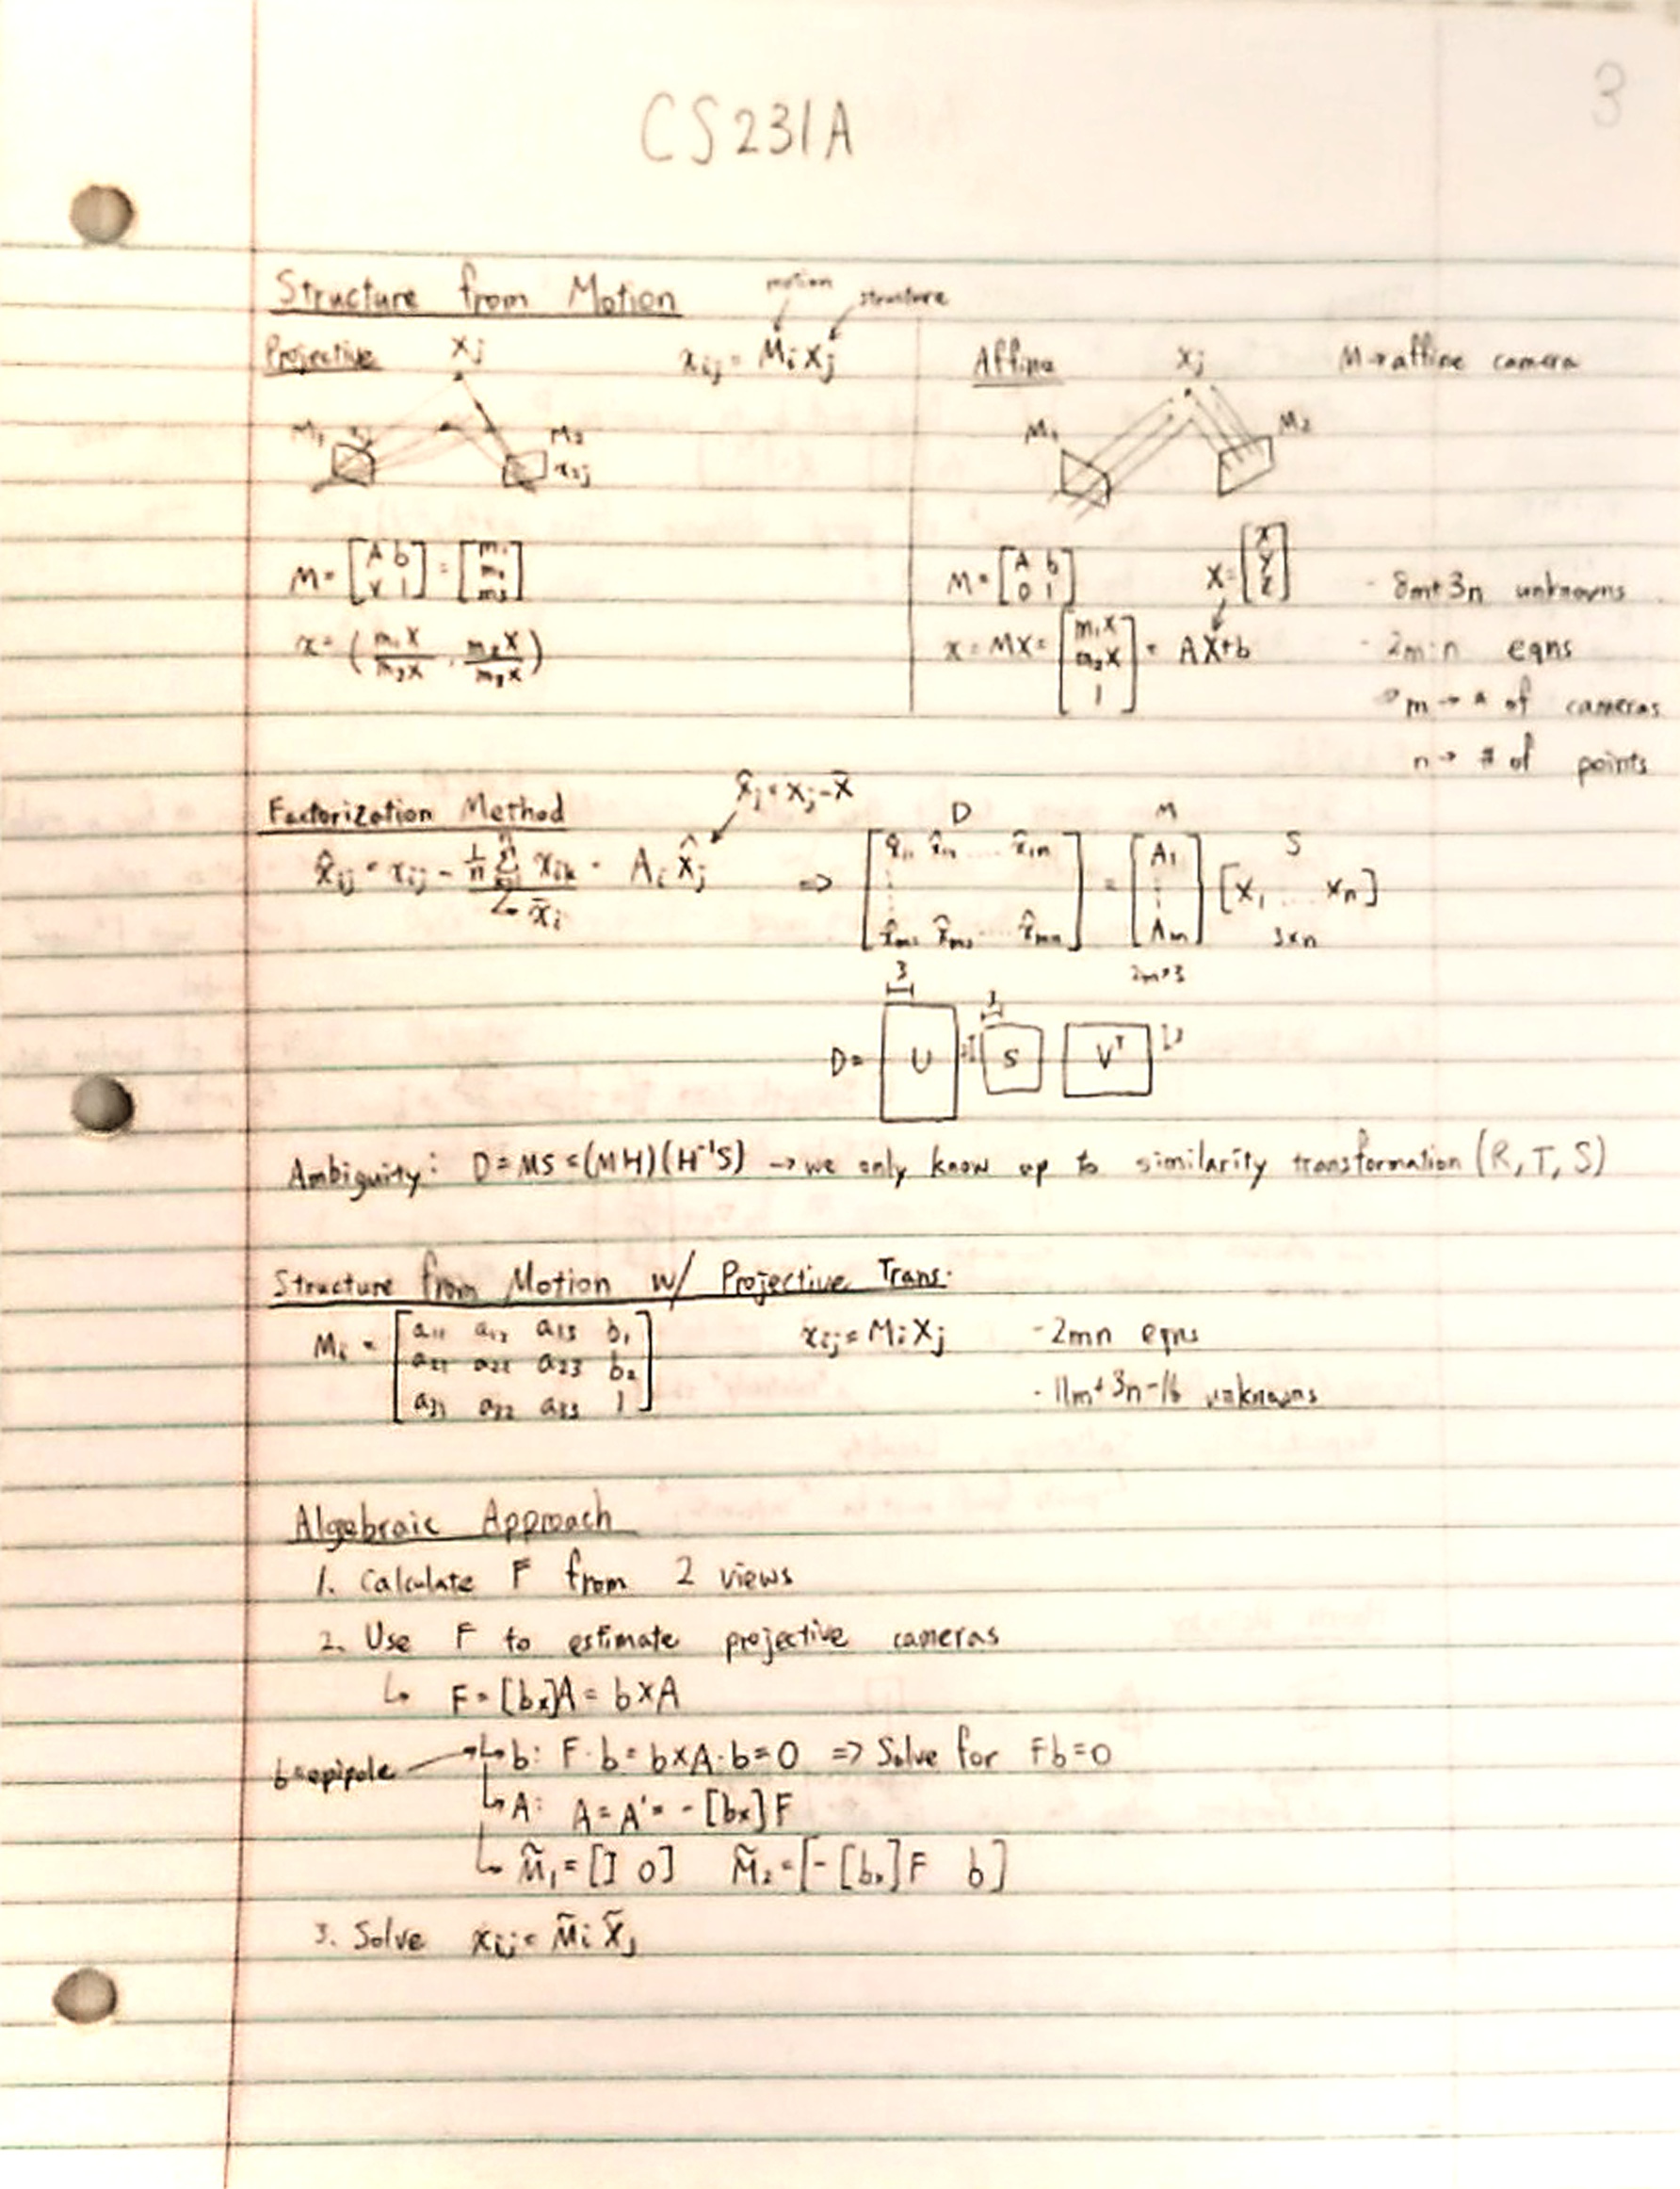 3
CS231A
Structure from Motion
motion
structure
Projective
Xj
xij = Mi Xj
M1
M2
x2j
M = [A b; v 1] = [m1; m2; m3]
x = (m1X/m3X, m2X/m3X)
Affine
Xj
M → affine camera
M1
M2
M = [A b; 0 1]
X = [x; y; z]
x = MX = [m1X; m2X; 1] = AX+b
- 8m+3n unknowns
- 2m·n eqns
m → # of cameras
n → # of points
Factorization Method
X̂j = Xj - X̄
x̂ij = xij - 1/n Σ xik = Ai X̂j
↳ x̄i
⇒
D
M
S
[x̂11 x̂12 .... x̂1n; x̂m1 x̂m2 .... x̂mn] = [A1; Am] [X1 ... Xn]
3xn
2m×3
3
3
3
D = U S Vᵀ
Ambiguity: D = MS = (MH)(H⁻¹S) → we only know up to similarity transformation (R, T, S)
Structure from Motion w/ Projective Trans.
Mi = [a11 a12 a13 b1; a21 a22 a23 b2; a31 a32 a33 1]
xij = Mi Xj
- 2mn eqns
- 11m+3n-16 unknowns
Algebraic Approach
1. Calculate F from 2 views
2. Use F to estimate projective cameras
↳ F = [bx]A = b×A
b = epipole → ↳ b: F·b = b×A·b = 0 ⇒ Solve for Fb=0
↳ A: A = A' = -[bx]F
↳ M̃1 = [I 0] M̃2 = [-[bx]F b]
3. Solve xij = M̃i X̃j